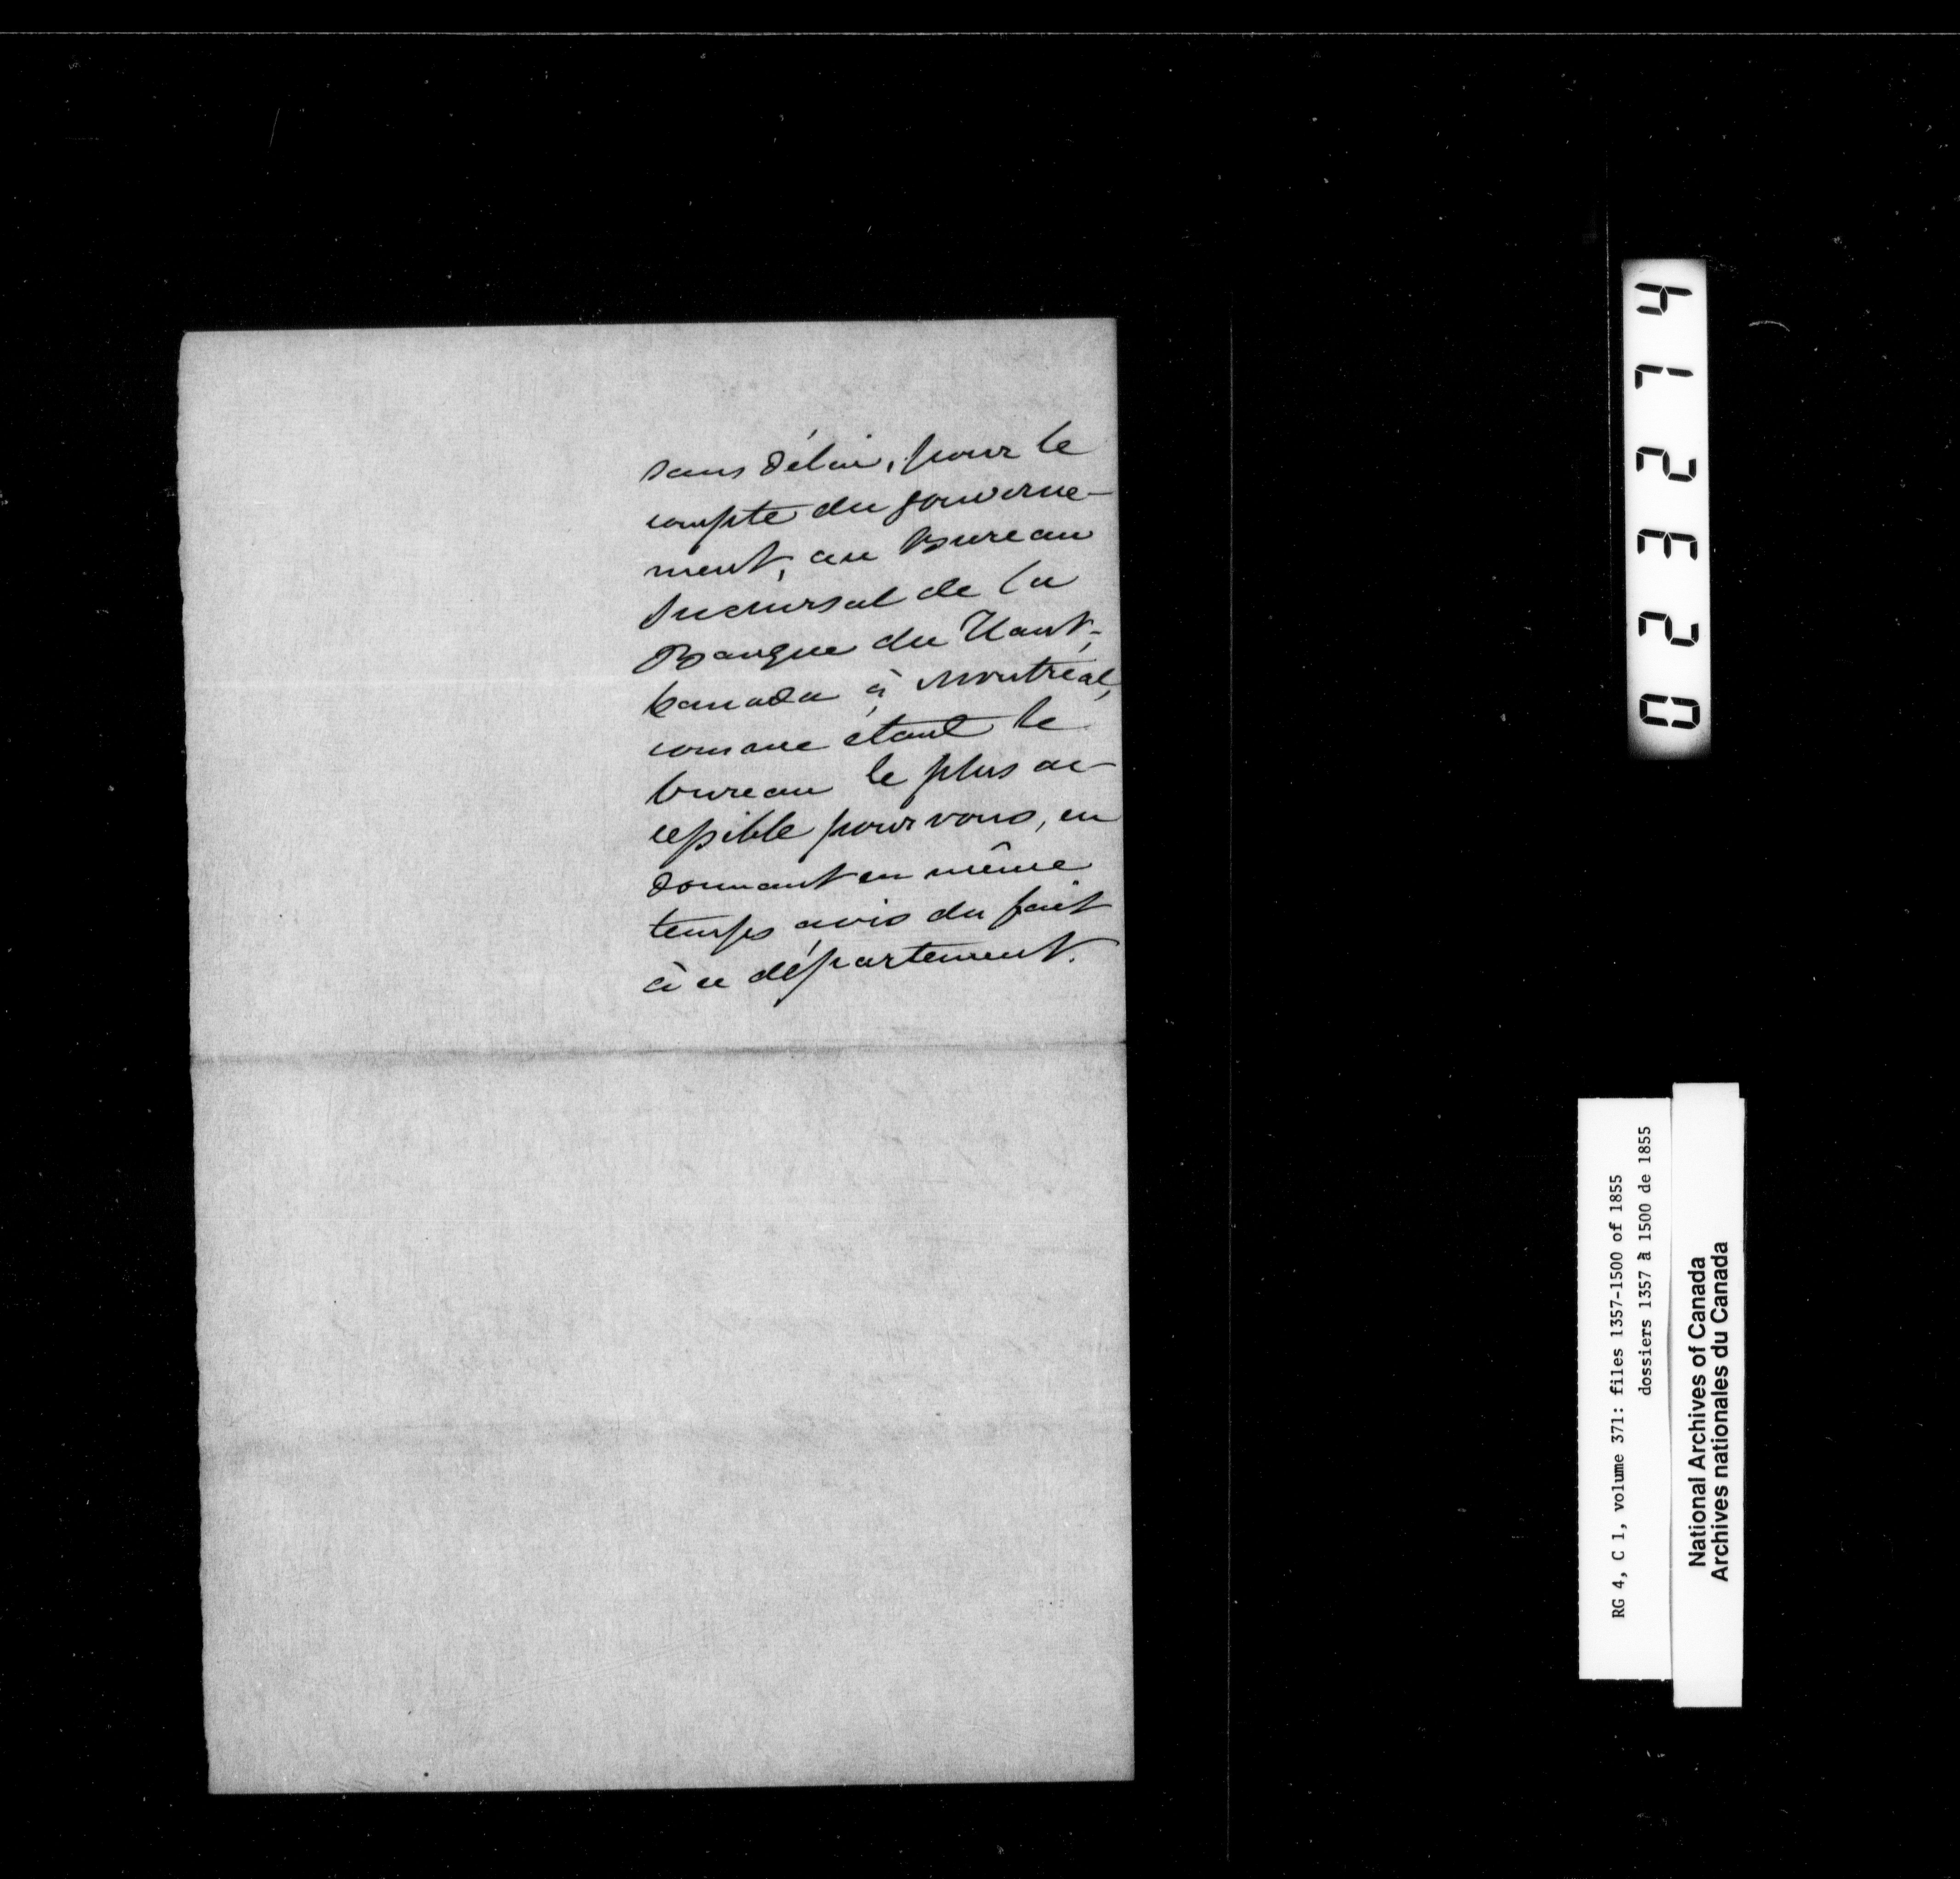 sans délai, pour le
compte du gouverne-
ment, au Bureau
Succursal de la
Banque du Haut-
Canada à Montréal,
comme étant le
bureau le plus ac-
cessible pour vous, en
donnant en même
temps avis du fait
à ce département.
4
1
2
3
2
0
RG 4, C 1, volume 371: files 1357-1500 of 1855
dossiers 1357 à 1500 de 1855
National Archives of Canada
Archives nationales du Canada